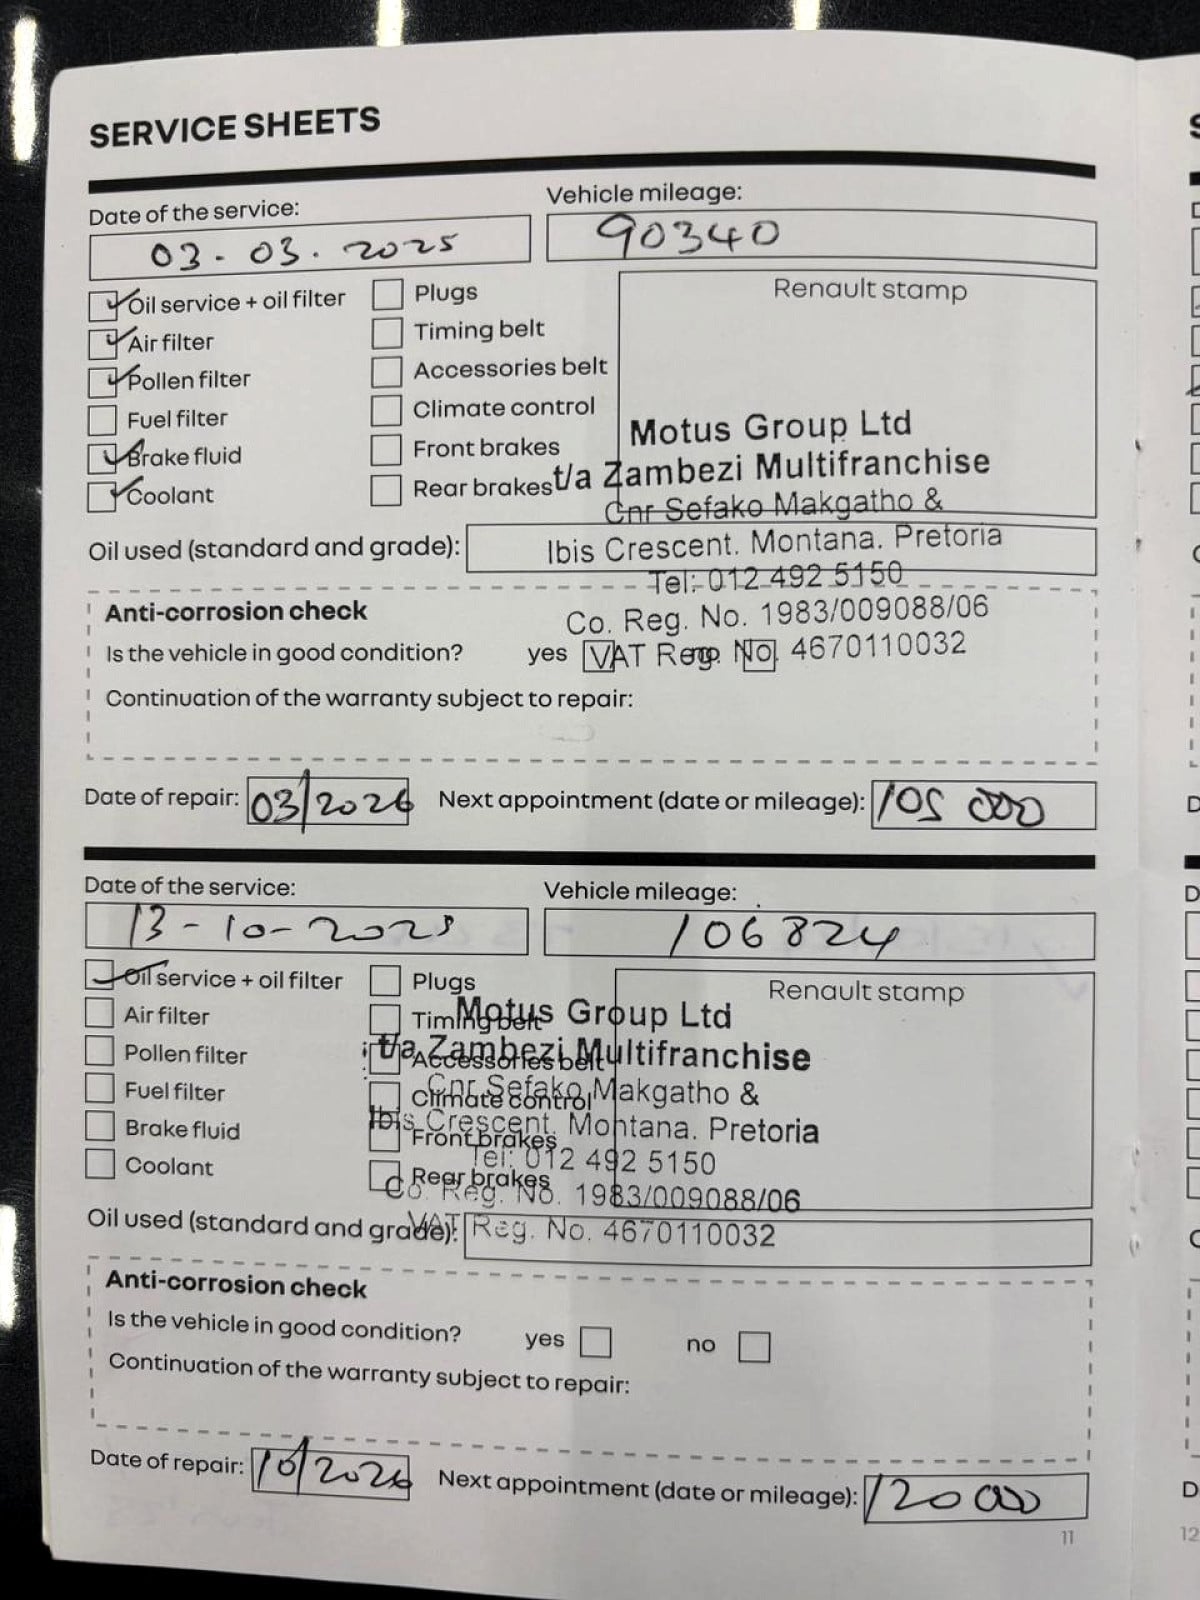 SERVICE SHEETS
Date of the service: Vehicle mileage:
03-03.2025 90340
Oil service + oil filter Plugs Renault stamp
Air filter Timing belt
Pollen filter Accessories belt
Fuel filter Climate control
Brake fluid Front brakes
Coolant Rear brakes
Motus Group Ltd
t/a Zambezi Multifranchise
Cnr Sefako Makgatho &
Ibis Crescent. Montana. Pretoria
Tel: 012 492 5150
Co. Reg. No. 1983/009088/06
VAT Reg. No. 4670110032
Oil used (standard and grade):
Anti-corrosion check
Is the vehicle in good condition? yes no
Continuation of the warranty subject to repair:
Date of repair: 03/2026 Next appointment (date or mileage): 105 000
Date of the service: Vehicle mileage:
13-10-2025 106824
Oil service + oil filter Plugs Renault stamp
Air filter Timing belt
Pollen filter Accessories belt
Fuel filter Climate control
Brake fluid Front brakes
Coolant Rear brakes
Motus Group Ltd
t/a Zambezi Multifranchise
Cnr Sefako Makgatho &
Ibis Crescent. Montana. Pretoria
Tel: 012 492 5150
Co. Reg. No. 1983/009088/06
VAT Reg. No. 4670110032
Oil used (standard and grade):
Anti-corrosion check
Is the vehicle in good condition? yes no
Continuation of the warranty subject to repair:
Date of repair: 10/2026 Next appointment (date or mileage): 120 000
11
12